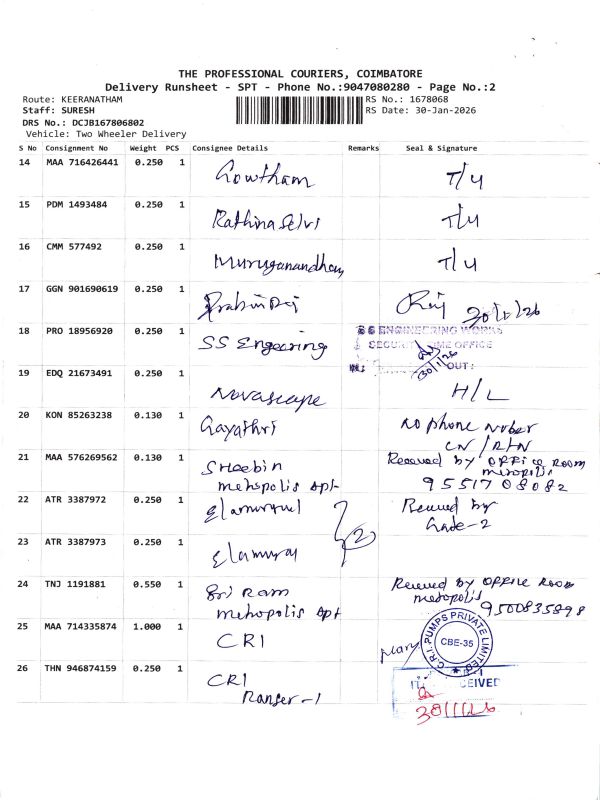 THE PROFESSIONAL COURIERS, COIMBATORE
Delivery Runsheet - SPT - Phone No.:9047080280 - Page No.:2
Route: KEERANATHAM
Staff: SURESH
DRS No.: DCJB167806802
Vehicle: Two Wheeler Delivery
RS No.: 1678068
RS Date: 30-Jan-2026
S No Consignment No Weight PCS Consignee Details Remarks Seal & Signature
14 MAA 716426441 0.250 1 Gowtham T/4
15 PDM 1493484 0.250 1 Rathinaselvi T/4
16 CMM 577492 0.250 1 Muruganandham T/4
17 GGN 901690619 0.250 1 30/1/26
18 PRO 18956920 0.250 1 SS Engeering
SS ENGINEERING WORKS
SECURITY TIME OFFICE
OUT:
30/1/26
19 EDQ 21673491 0.250 1 Novascape H/L
20 KON 85263238 0.130 1 Gayathri no phone nober
CN / RTN
21 MAA 576269562 0.130 1 Sheebin Received by office room
metropolis apt metropolis
9551708082
22 ATR 3387972 0.250 1 2
Gate-2
23 ATR 3387973 0.250 1
24 TNJ 1191881 0.550 1 Sri Ram Received by office room
metropolis apt metropolis
9500835898
25 MAA 714335874 1.000 1 CRI
C.R.I. PUMPS PRIVATE LIMITED
CBE-35
26 THN 946874159 0.250 1 CRI
Ranser-1
30/1/26